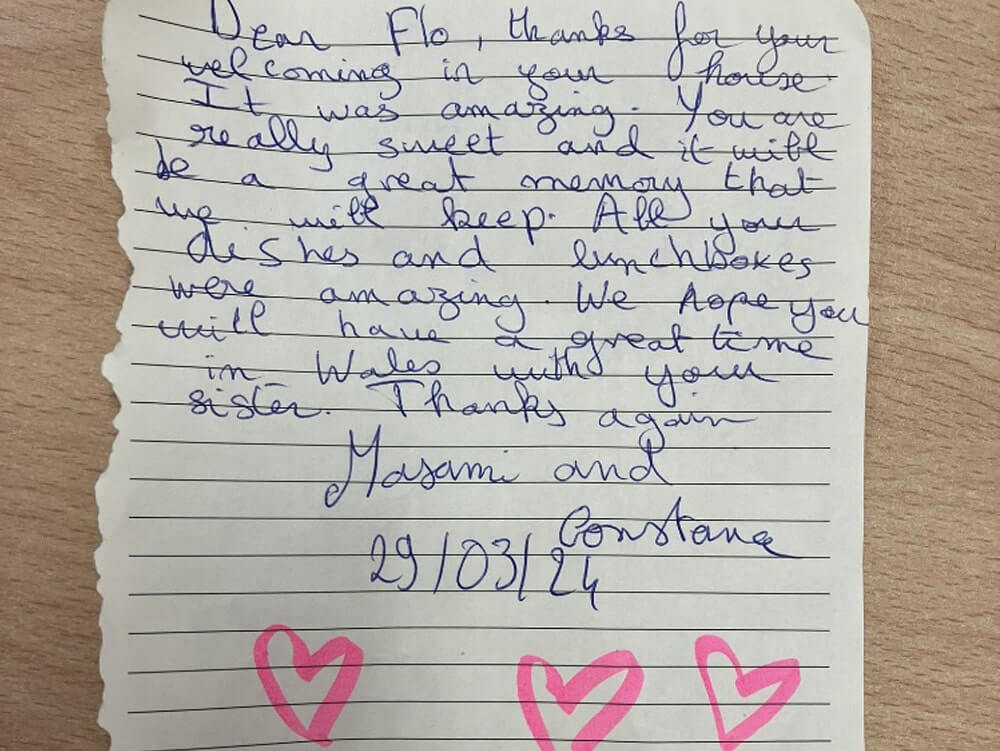 Dear Flo, thanks for your
welcoming in your house.
It was amazing. You are
really sweet and it will
be a great memory that
we will keep. All your
dishes and lunchboxes
were amazing. We hope you
will have a great time
in Wales with your
sister. Thanks again
Masami and
Constance
29/03/24